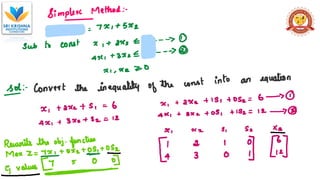 SRI KRISHNA
INSTITUTIONS
Simplex Method:-
= 7x1+5x2
Sub to const x1+2x2 ≤ ---> ①
4x1+3x2 ≤ ---> ②
x1, x2 ≥ 0
Sol:- Convert the inequality of the const into an equation
x1 + 2x2 + S1 = 6
4x1 + 3x2 + S2 = 12
x1 + 2x2 + 1S1 + 0S2 = 6 → ①
4x1 + 3x2 + 0S1 + 1S2 = 12 → ②
Rewrite the obj. function
Max Z = 7x1 + 5x2 + 0S1 + 0S2
Cj values [7 5 0 0]
x1 x2 S1 S2 XB
[1 2 1 0] [6]
[4 3 0 1] [12]